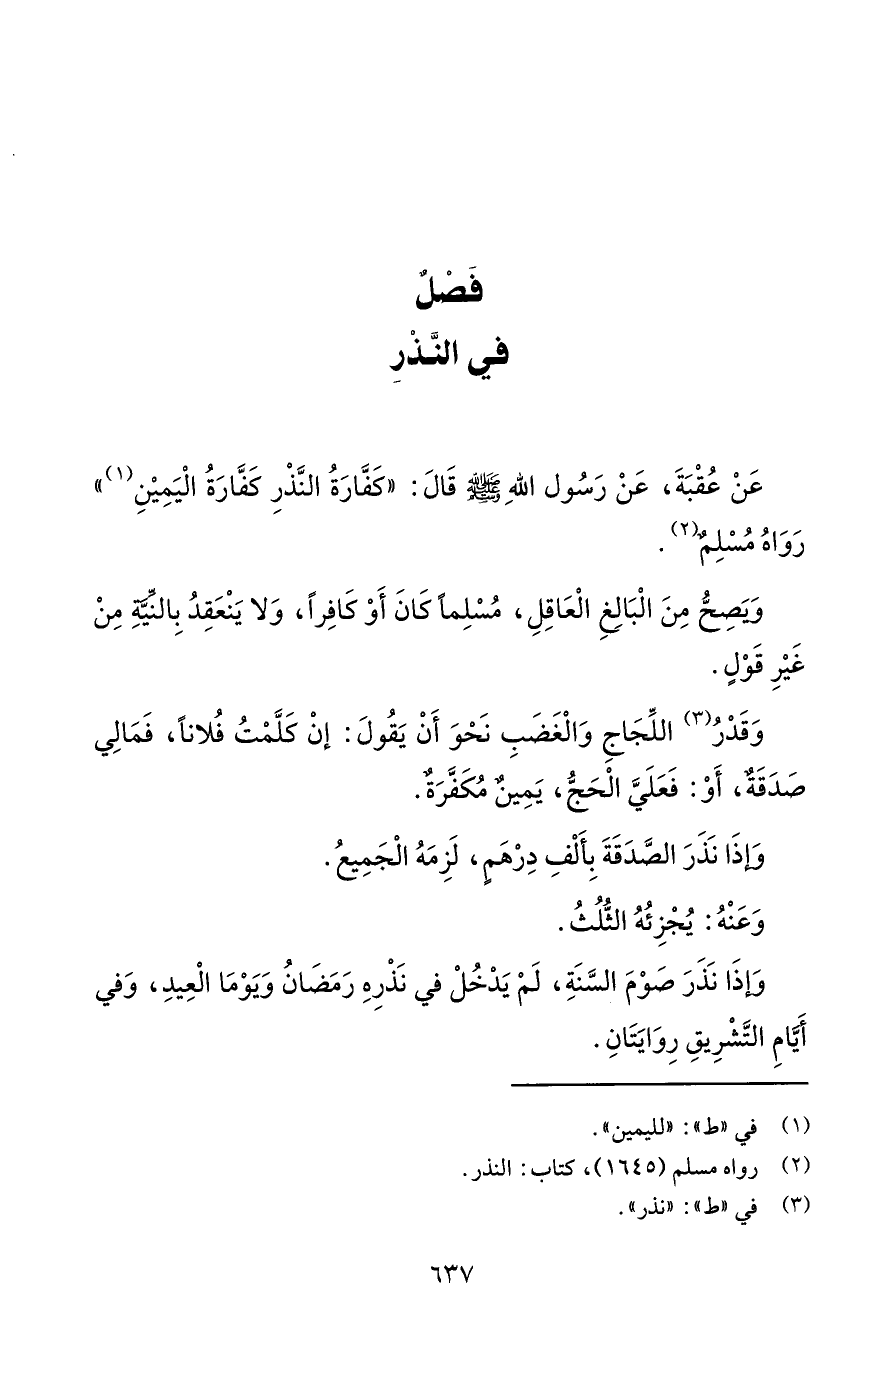 فَصْلٌ
في النَّذْرِ
عَنْ عُقْبَةَ، عَنْ رَسُول اللهِ ﷺ قَالَ: «كَفَّارَةُ النَّذْرِ كَفَّارَةُ الْيَمِيْنِ(١)»
رَوَاهُ مُسْلِمٌ(٢).
وَيَصِحُّ مِنَ الْبَالِغِ الْعَاقِلِ، مُسْلِماً كَانَ أَوْ كَافِراً، وَلا يَنْعَقِدُ بِالنِّيَّةِ مِنْ
غَيْرِ قَوْلٍ.
وَقَدْرُ(٣) اللَّجَاجِ وَالْغَضَبِ نَحْوَ أَنْ يَقُولَ: إِنْ كَلَّمْتُ فُلاناً، فَمَالِي
صَدَقَةٌ، أَوْ: فَعَلَيَّ الْحَجُّ، يَمِينٌ مُكَفَّرَةٌ.
وَإِذَا نَذَرَ الصَّدَقَةَ بِأَلْفِ دِرْهَمٍ، لَزِمَهُ الْجَمِيعُ.
وَعَنْهُ: يُجْزِئُهُ الثُّلُثُ.
وَإِذَا نَذَرَ صَوْمَ السَّنَةِ، لَمْ يَدْخُلْ في نَذْرِهِ رَمَضَانُ وَيَوْمَا الْعِيدِ، وَفي
أَيَّامِ التَّشْرِيقِ رِوَايَتَانِ.
(١) في «ط»: «لليمين».
(٢) رواه مسلم (١٦٤٥)، كتاب: النذر.
(٣) في «ط»: «نذر».
٦٣٧